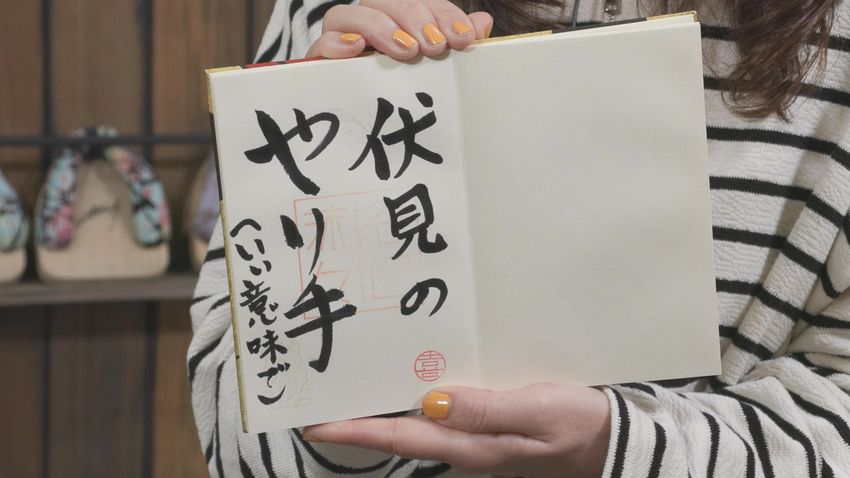 伏見の
やり手
(いい意味で)